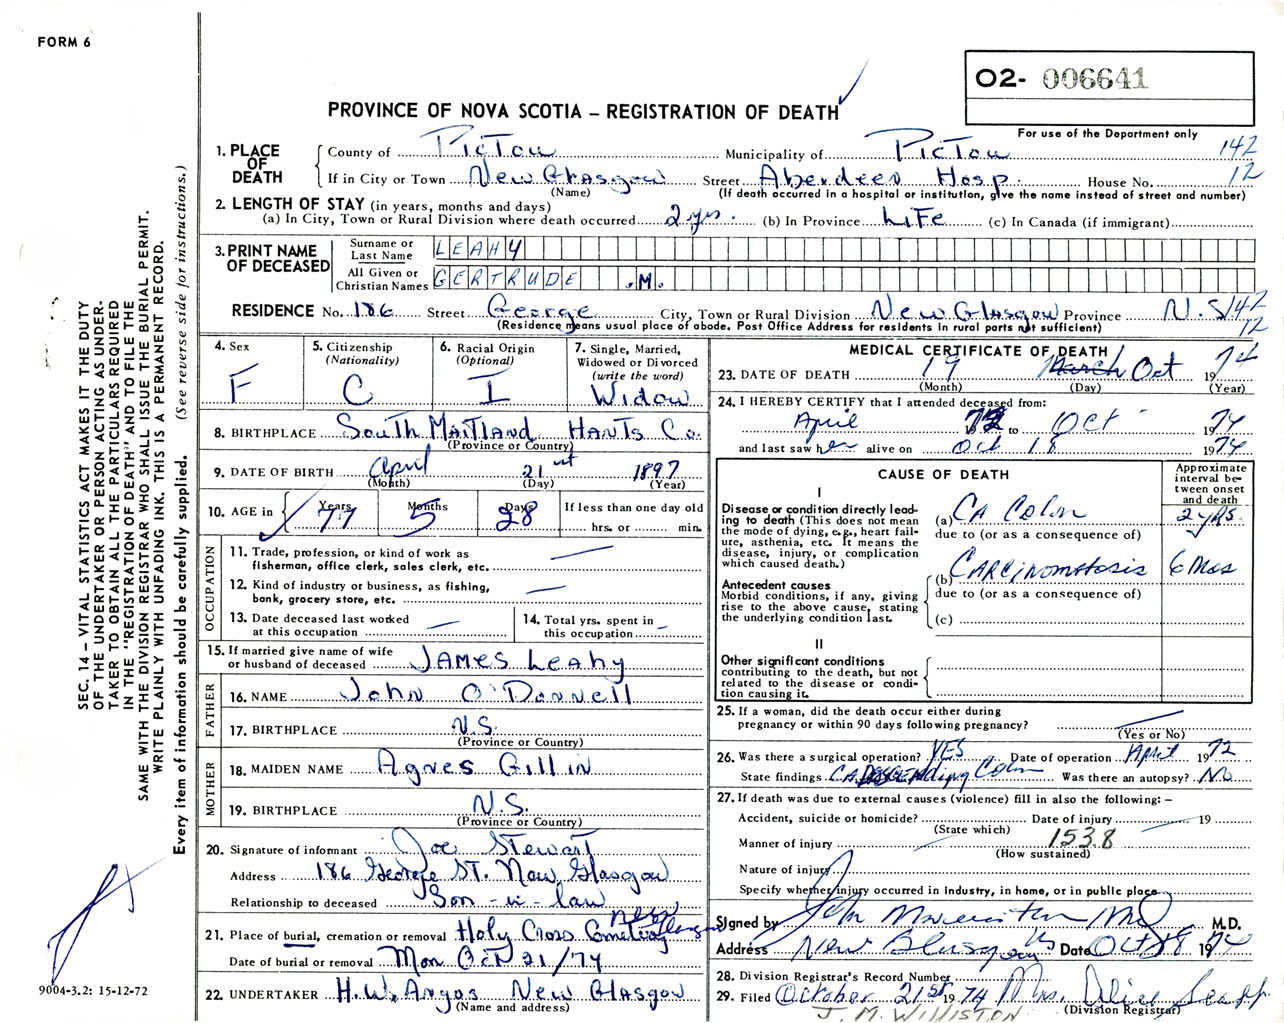 FORM 6
O2- 006641
PROVINCE OF NOVA SCOTIA – REGISTRATION OF DEATH
For use of the Department only
1. PLACE OF DEATH County of Pictou Municipality of Pictou 142
If in City or Town New Glasgow Street Aberdeen Hosp. House No. 12
(Name) (If death occurred in a hospital or institution, give the name instead of street and number)
2. LENGTH OF STAY (in years, months and days)
(a) In City, Town or Rural Division where death occurred 2 yrs. (b) In Province Life (c) In Canada (if immigrant)
3. PRINT NAME OF DECEASED Surname or Last Name LEAHY
All Given or Christian Names GERTRUDE .M.
RESIDENCE No. 186 Street George City, Town or Rural Division New Glasgow Province N.S. 142
(Residence means usual place of abode. Post Office Address for residents in rural parts not sufficient) 12
4. Sex F
5. Citizenship (Nationality) C
6. Racial Origin (Optional) I
7. Single, Married, Widowed or Divorced (write the word) Widow
8. BIRTHPLACE South Maitland Hants Co.
(Province or Country)
9. DATE OF BIRTH April 21st 1897
(Month) (Day) (Year)
10. AGE in Years 77 Months 5 Days 28 If less than one day old
hrs. or min.
OCCUPATION
11. Trade, profession, or kind of work as fisherman, office clerk, sales clerk, etc. —
12. Kind of industry or business, as fishing, bank, grocery store, etc. —
13. Date deceased last worked at this occupation —
14. Total yrs. spent in this occupation —
15. If married give name of wife or husband of deceased James Leahy
FATHER
16. NAME John O'Donnell
17. BIRTHPLACE N.S.
(Province or Country)
MOTHER
18. MAIDEN NAME Agnes Gillin
19. BIRTHPLACE N.S.
(Province or Country)
20. Signature of informant Joe Stewart
Address 186 George St. New Glasgow
Relationship to deceased Son-in-law
21. Place of burial, cremation or removal Holy Cross Cemetery New Glasgow
Date of burial or removal Mon Oct 21/74
22. UNDERTAKER H.W. Angus New Glasgow
(Name and address)
MEDICAL CERTIFICATE OF DEATH
23. DATE OF DEATH 19 March Oct 1974
(Month) (Day) (Year)
24. I HEREBY CERTIFY that I attended deceased from:
April 72 to Oct 1974
and last saw her alive on Oct 18 1974
CAUSE OF DEATH
Approximate interval between onset and death
I
Disease or condition directly leading to death (This does not mean the mode of dying, e.g., heart failure, asthenia, etc. It means the disease, injury, or complication which caused death.)
(a) CA Colon 2 yrs.
due to (or as a consequence of)
Antecedent causes
Morbid conditions, if any, giving rise to the above cause, stating the underlying condition last.
(b) Carcinomatosis 6 Mos
due to (or as a consequence of)
(c)
II
Other significant conditions contributing to the death, but not related to the disease or condition causing it.
25. If a woman, did the death occur either during pregnancy or within 90 days following pregnancy? —
(Yes or No)
26. Was there a surgical operation? YES Date of operation April 1972
State findings CA Descending Colon Was there an autopsy? No
27. If death was due to external causes (violence) fill in also the following: –
Accident, suicide or homicide? Date of injury 19
(State which)
Manner of injury 1538
(How sustained)
Nature of injury
Specify whether injury occurred in industry, in home, or in public place
Signed by John M.D.
Address New Glasgow NS Date Oct 1974
28. Division Registrar's Record Number
29. Filed October 21st 1974 Mrs. Alice
J. M. WILLISTON (Division Registrar)
SEC. 14 – VITAL STATISTICS ACT MAKES IT THE DUTY
OF THE UNDERTAKER OR PERSON ACTING AS UNDER-
TAKER TO OBTAIN ALL THE PARTICULARS REQUIRED
IN THE "REGISTRATION OF DEATH" AND TO FILE THE
SAME WITH THE DIVISION REGISTRAR WHO SHALL ISSUE THE BURIAL PERMIT.
WRITE PLAINLY WITH UNFADING INK. THIS IS A PERMANENT RECORD.
Every item of information should be carefully supplied. (See reverse side for instructions.)
9004-3.2: 15-12-72